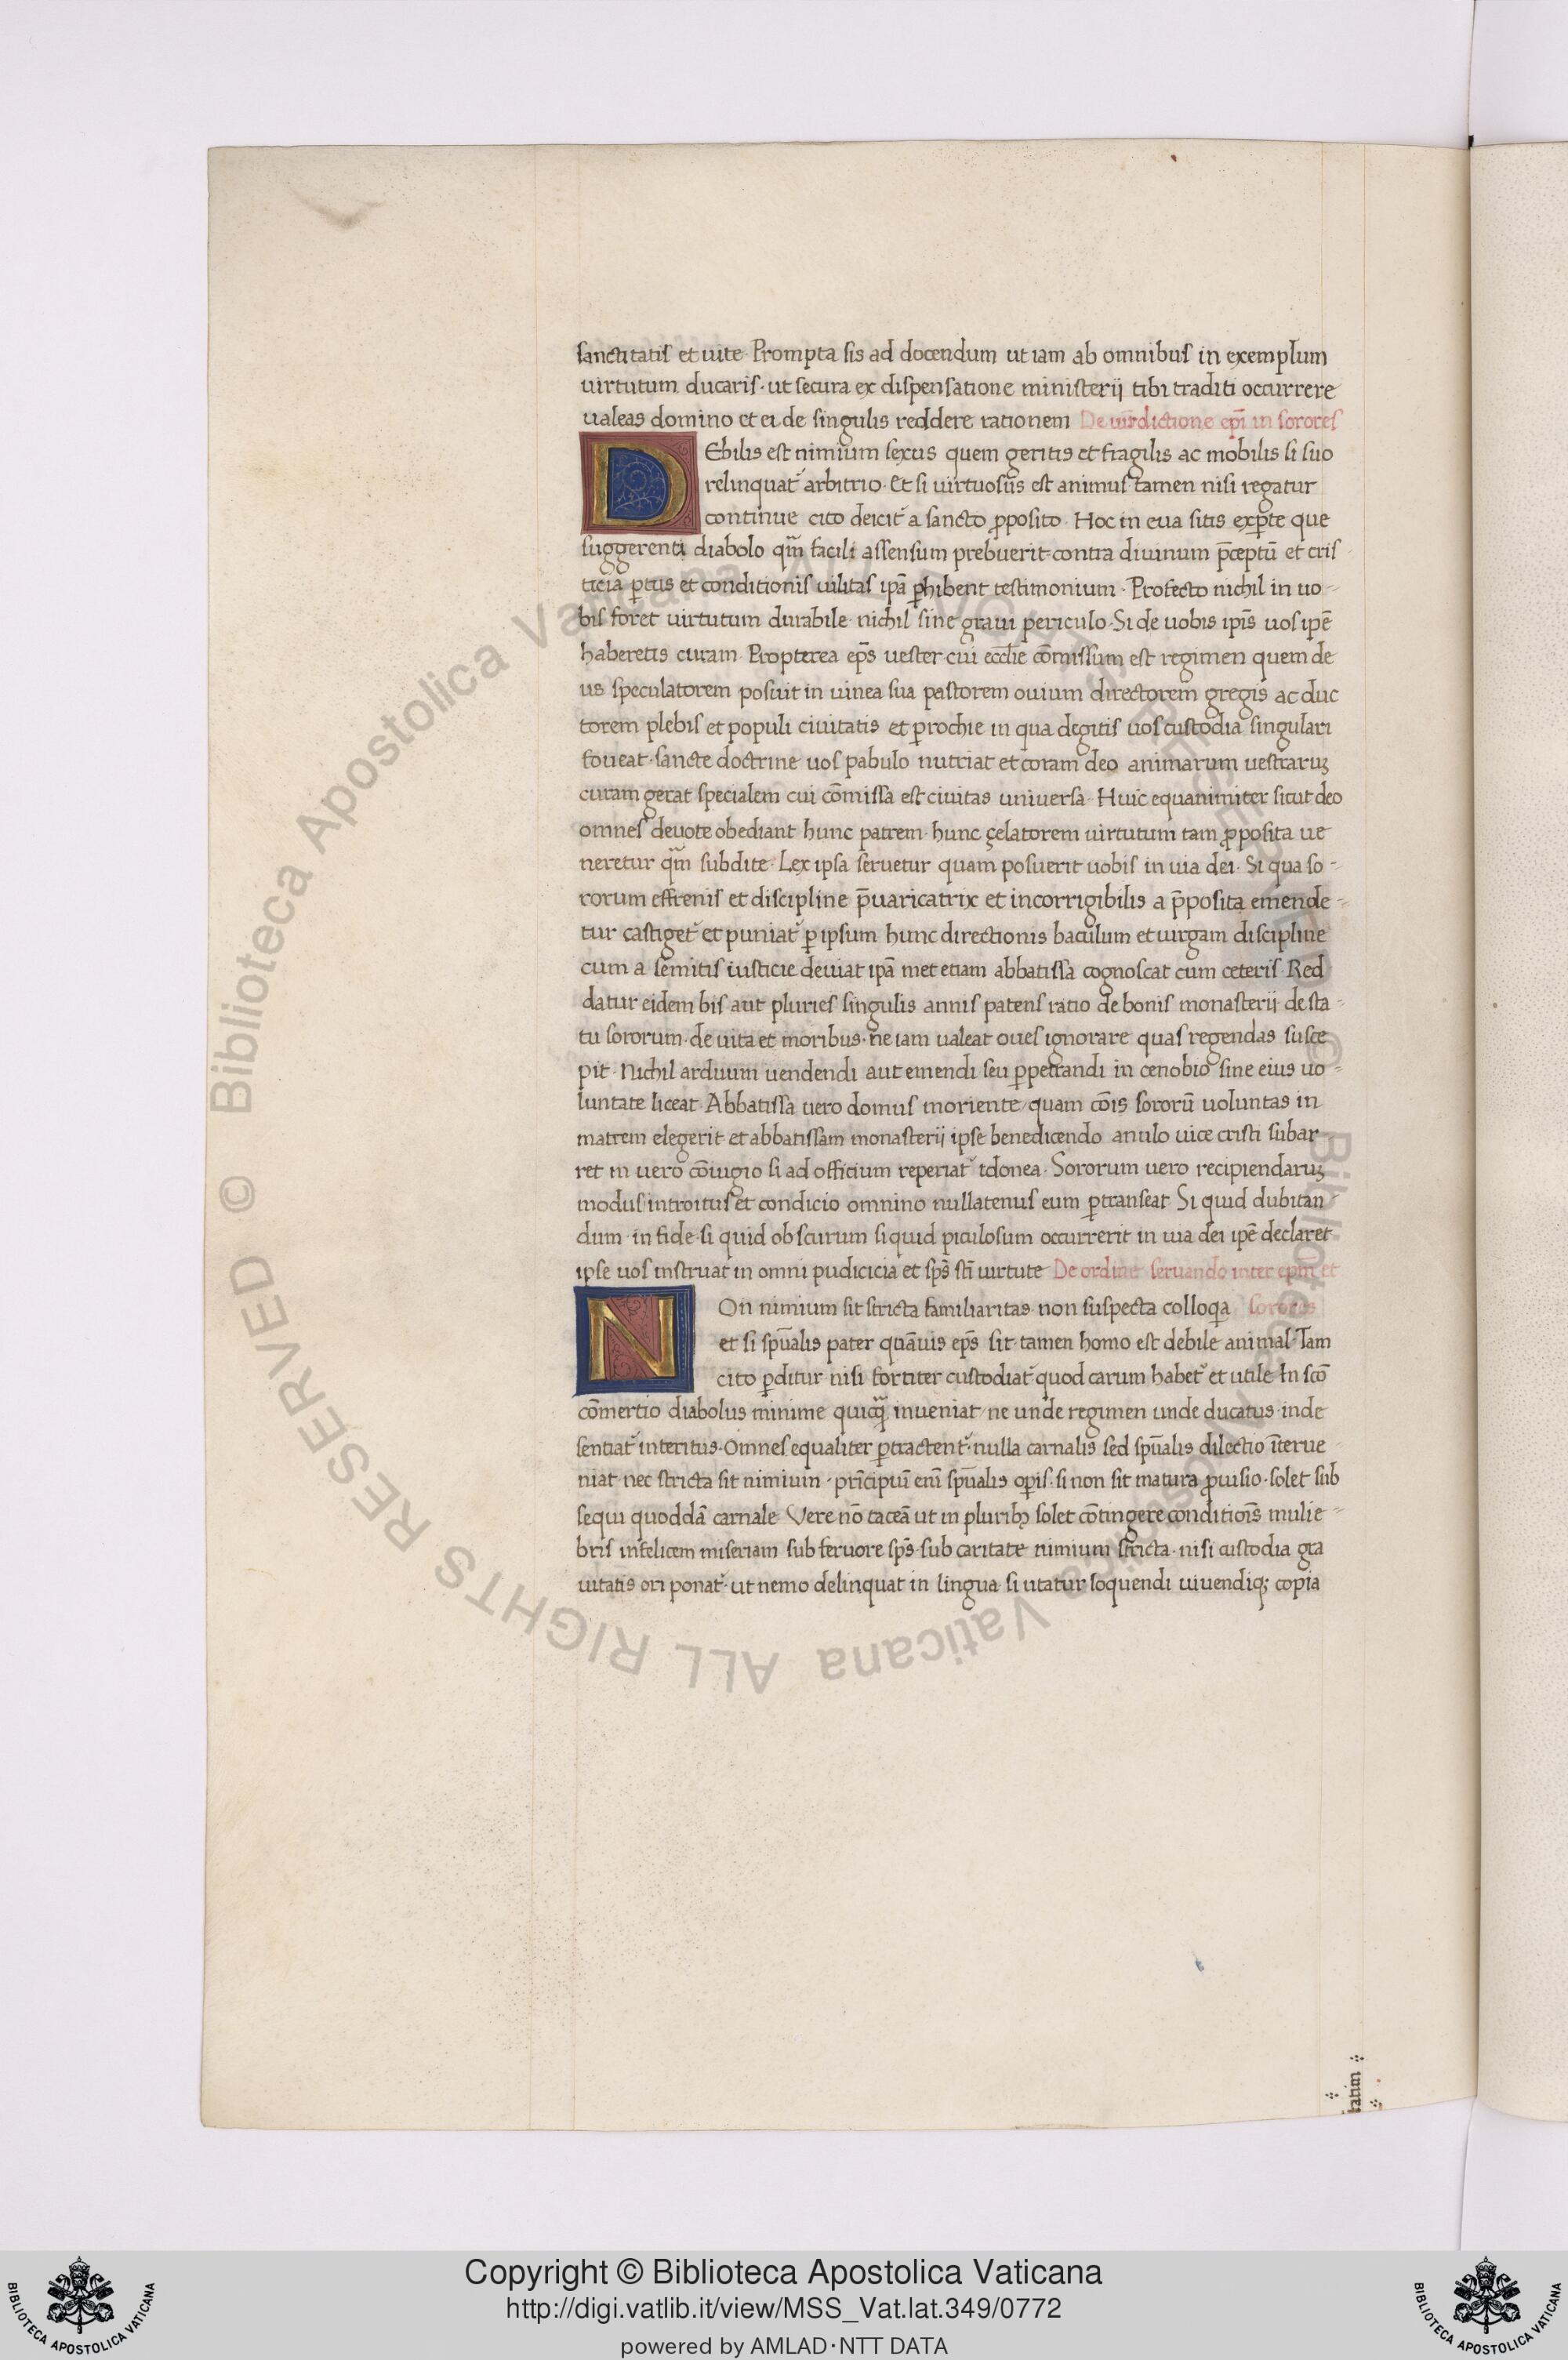 sanctitatis et uite. Prompta sis ad docendum ut iam ab omnibus in exemplum
uirtutum ducaris. ut secura ex dispensatione ministerij tibi traditi occurrere
ualeas domino et ei de singulis reddere rationem De iurisdictione ep̄i in sorores
DEbilis est nimium sexus quem geritis et fragilis ac mobilis si suo
relinquat᷑ arbitrio. Et si uirtuosus est animus tamen nisi regatur
continue cito deicit᷑ a sancto ꝓposito. Hoc in eua sitis exꝑte que
suggerenti diabolo qm̄ facili assensum prebuerit contra diuinum p̄ceptū et tris
ticia ꝑtus et conditionis uilitas ipā ꝑhibent testimonium. Profecto nichil in uo-
bis foret uirtutum durabile nichil sine graui periculo. Si de uobis ip̄is uos ip̄e
haberetis curam. Propterea ep̄s uester cui eccl̄ie cōmissum est regimen quem de
us speculatorem posuit in uinea sua pastorem ouium directorem gregis ac duc
torem plebis et populi ciuitatis et ꝑrochie in qua degitis uos custodia singulari
foueat. sancte doctrine uos pabulo nutriat et coram deo animarum uestraruꝫ
curam gerat specialem cui cōmissa est ciuitas uniuersa. Huic equanimiter sicut deo
omnes deuote obediant hunc patrem. hunc çelatorem uirtutum tam ꝓposita ue
neretur qm̄ subdite. Lex ipsa seruetur quam posuerit uobis in uia dei. Si qua so-
rorum effrenis et discipline p̄uaricatrix et incorrigibilis a p̄posita emende-
tur castiget᷑ et puniat᷑ ꝑ ipsum hunc directionis baculum et uirgam discipline
cum a semitis iusticie deuiat ipā met etiam abbatissa cognoscat cum ceteris. Red
datur eidem bis aut pluries singulis annis patens ratio de bonis monasterij de sta-
tu sororum. de uita et moribus. ne iam ualeat oues ignorare quas regendas susce
pit. Nichil arduum uendendi aut emendi seu ꝑpetrandi in cenobio sine eius uo-
luntate liceat. Abbatissa uero domus moriente quam cōis sororū uoluntas in
matrem elegerit et abbatissam monasterij ipse benedicendo anulo uice cristi subar
ret in uero cōiugio si ad officium reperiat᷑ idonea. Sororum uero recipiendaruꝫ
modus introitus et condicio omnino nullatenus eum ꝑtranseat. Si quid dubitan-
dum in fide si quid obscurum si quid piculosum occurrerit in uia dei ip̄e declaret
ipse uos instruat in omni pudicicia et sp̄s sc̄i uirtute De ordine seruando inter ep̄m et
NOn nimium sit stricta familiaritas non suspecta colloqa sorores
et si spūalis pater quāuis ep̄s sit tamen homo est debile animal. Tam
cito ꝑditur nisi fortiter custodiat᷑ quod carum habet᷑ et utile. In scō
cōmertio diabolus minime quicq̄ inueniat ne unde regimen unde ducatus inde
sentiat᷑ interitus. Omnes equaliter ꝑtractent᷑. nulla carnalis sed spūalis dilectio īterue
niat nec stricta sit nimium. prīcipiū enī spūalis oꝑis. si non sit matura ꝓuisio. solet sub
sequi quoddā carnale. Vere nō taceā ut in pluribꝫ solet cōtingere conditiōis mulie-
bris infelicem miseriam sub feruore sp̄s sub caritate nimium stricta. nisi custodia gra
uitatis ori ponat᷑. ut nemo delinquat in lingua si utatur loquendi uiuendiqꝫ copia
Copyright © Biblioteca Apostolica Vaticana
http://digi.vatlib.it/view/MSS_Vat.lat.349/0772
powered by AMLAD·NTT DATA